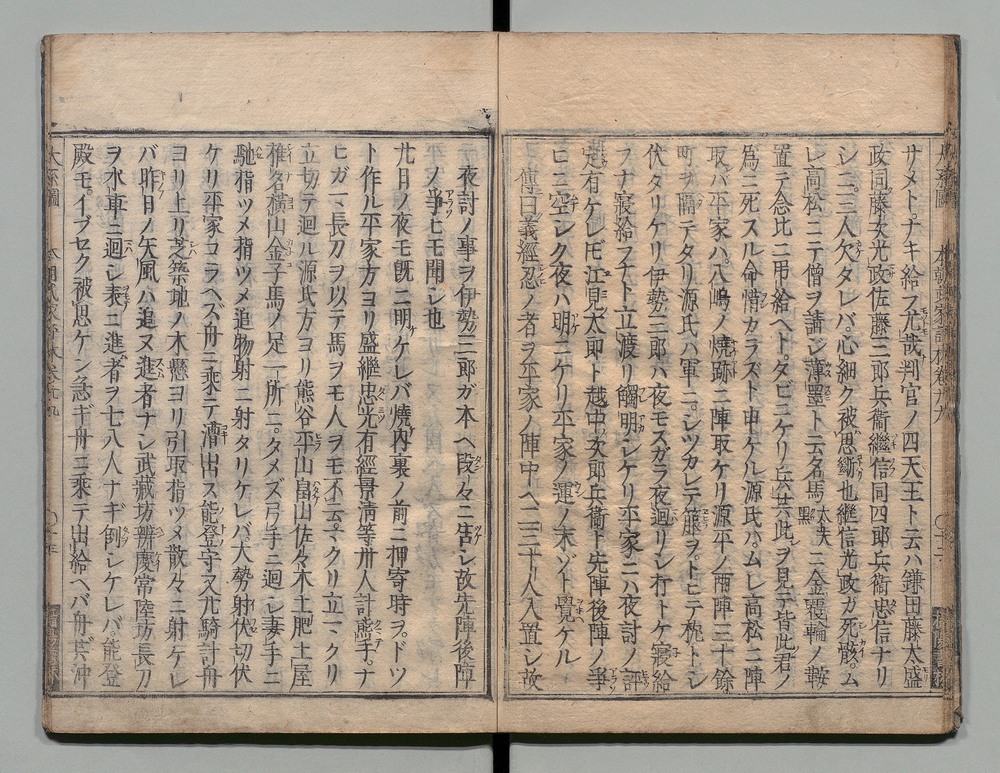 サメトゾナキ給フ尤哉判官ノ四天王ト云ハ鎌田藤太盛
政同藤次光政佐藤三郎兵衛繼信同四郎兵衛忠信ナリ
シニ二人欠タレバ心細ク被思ケル也繼信光政ガ死骸ム
レ高松ニテ僧ヲ請シ薄墨ト云名馬太夫黒ニ金覆輪ノ鞍
置テ念比ニ弔給ヘトタビニケリ兵共此ヲ見テ皆此君ノ
為ニ死スル命惜カラズト申ケル源氏ハムレ高松ニ陣
取バ平家ハ八嶋ノ燒跡ニ陣取ケリ源平ノ兩陣三十餘
町ヲ隔テタリ源氏ハ軍ニシツカレテ箙ヲトヒテ枕トシ
伏タリケリ伊勢三郎ハ夜モスガラ夜廻リシ行トケ寢給
フナ寢給フナト立渡リ觸明シケリ平家ニハ夜討ノ評
定有ケレドモ江見太郎ト越中次郎兵衛ト先陣後陣ノ爭
ヒニ空レク夜ハ明ニケリ平家ノ運ノ末ゾト覺ケル
傳曰義經忍ノ者ヲ平家ノ陣中ヘ二三十人入置シ故
夜討ノ事ヲ伊勢三郎ガ本ヘ段々ニ告シ故先陣後陣
ノ爭ヒモ聞シ也
廿日ノ夜モ既ニ明ケレバ燒内裏ノ前ニ押寄時ヲドツ
ト作ル平家方ヨリ盛繼忠光有經景清等卅人計熊手ナ
ヒガマ長刀ヲ以テ馬ヲモ人ヲモ不云クリ立クリ
立切テ廻ル源氏方ヨリ熊谷平山畠山佐々木土肥土屋
椎名橫山金子馬ノ足一所ニタメズ弓手ニ廻シ妻手ニ
馳指ツメ指ツメ追物射ニ射タリケレバ大勢射伏切伏
ケリ平家コラヘズ舟ニ乘テ漕出ス能登守又九騎計舟
ヨリ上リ芝築地ノ木懸ヨリ引取指ツメ散々ニ射ケレ
バ昨日ノ矢風ハ追又進者ナシ武藏坊辨慶常陸坊長刀
ヲ水車ニ廻シ表ニ進者ヲ七八人ナギ倒レケレバ能登
殿モイブセク被思ケン急ギ舟ニ乘テ出給ヘバ舟共沖